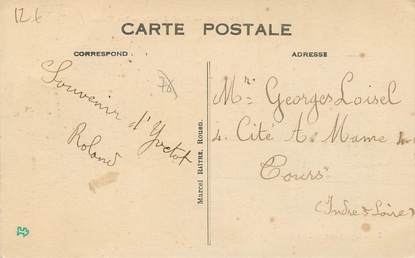 12€
CARTE POSTALE
CORRESPOND
ADRESSE
Souvenir d'Yvetot
Roland
Marcel RAITRE, Rouen.
Mr Georges Loisel
4. Cité A. Mame
Tours
(Indre & Loire)